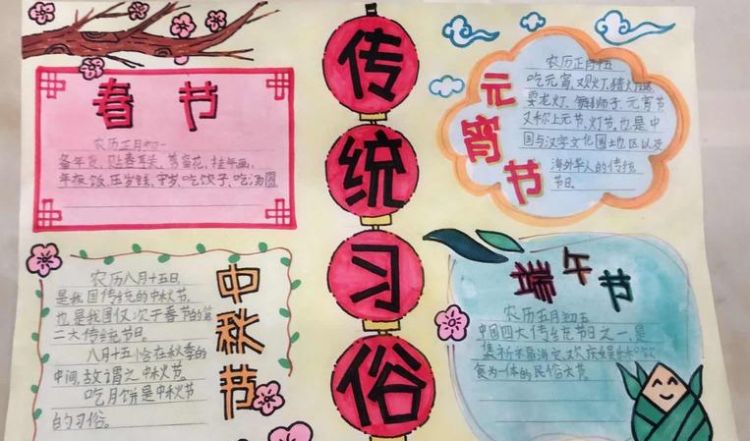 传统习俗
春节
农历正月初一
备年货、贴春联、剪窗花、挂年画、
年夜饭、压岁钱、守岁、吃饺子、吃汤圆
元宵节
农历正月十五
吃元宵、观灯、猜灯谜
耍龙灯、舞狮子 元宵节
又称上元节、灯节。也是中
国与汉字文化圈地区以及
海外华人的传统
节日。
中秋节
农历八月十五日,
是我国传统的中秋节,
也是我国仅次于春节的第
二大传统节日。
八月十五恰在秋季的
中间,故谓之中秋节。
吃月饼是中秋节
的习俗。
端午节
农历五月初五
中国四大传统节日之一,是
集祈福
食为一体的民俗大节。